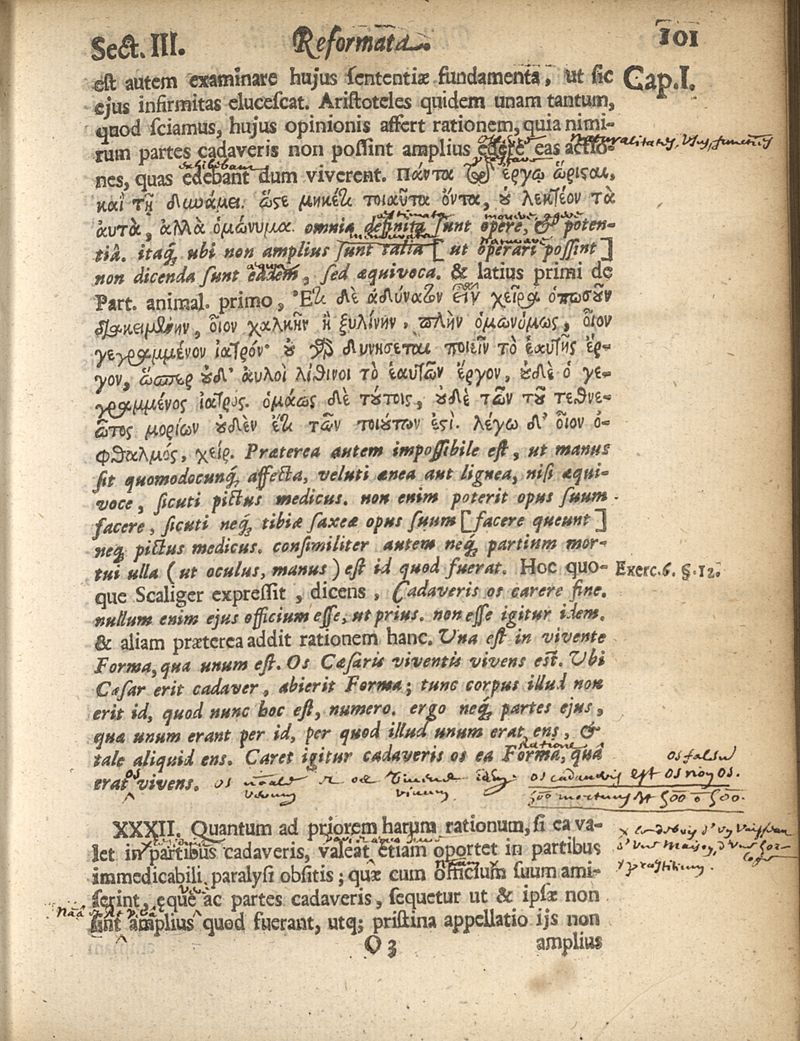 Sect. III. Reformata. 101
est autem examinare hujus sententiæ fundamenta, ut sic Cap. I.
ejus infirmitas elucescat. Aristoteles quidem unam tantum,
quod sciamus, hujus opinionis affert rationem, quia nimi-
rum partes cadaveris non possint amplius edere eas actio-
nes, quas edebant dum viverent. Πάντα τῷ ἔργῳ ὥρισται,
καὶ τῇ δυνάμει. ὥστε μηκέτι τοιαῦτα ὄντα, οὐ λεκτέον τὰ
ἀυτὰ, ἀλλὰ ὁμώνυμα. omnia definita sunt opere, & poten-
tiâ. itaq́; ubi non amplius sunt talia [ ut operari possint ]
non dicenda sunt eadem, sed æquivoca. & latius primi de
Part. animal. primo, Ἔτι δὲ ἀδύνατον εἶναι χεῖρα ὁπωσοῦν
διακειμένην, οἷον χαλκῆν ἢ ξυλίνην, πλὴν ὁμωνύμως, οἷον
γεγραμμένον ἰατρόν· οὐ γὰρ δυνήσεται ποιεῖν τὸ ἑαυτῆς ἔρ-
γον, ὥσπερ οὐδ' ἀυλοὶ λίθινοι τὸ ἑαυτῶν ἔργον, οὐδὲ ὁ γε-
γραμμένος ἰατρός. ὁμοίως δὲ τούτοις, οὐδὲ τῶν τοῦ τεθνε-
ῶτος μορίων οὐδὲν ἔτι τῶν τοιούτων ἐστί. λέγω δ' οἷον ὀ-
φθαλμὸς, χείρ. Præterea autem impossibile est, ut manus
sit quomodocunq́; affecta, veluti ænea aut lignea, nisi æqui-
voce, sicuti pictus medicus. non enim poterit opus suum
facere, sicuti neq́; tibiæ saxeæ opus suum [ facere queunt ]
neq́; pictus medicus. consimiliter autem neq́; partium mor-
tui ulla ( ut oculus, manus ) est id quod fuerat. Hoc quo- Exerc. 6. §. 12.
que Scaliger expressit, dicens, Cadaveris os carere fine.
nullum enim ejus officium esse, ut prius. non esse igitur idem.
& aliam præterea addit rationem hanc. Una est in vivente
Forma, qua unum est. Os Cæsaris viventis vivens est. Ubi
Cæsar erit cadaver, abierit Forma; tunc corpus illud non
erit id, quod nunc hoc est, numero. ergo neq́; partes ejus,
qua unum erant per id, per quod illud unum erat ens, &
tale aliquid ens. Caret igitur cadaveris os ea Forma, quâ
erat vivens. os cadaveris est os non os.
XXXII. Quantum ad priorem harum rationum, si ea va-
let in partibus cadaveris, valeat etiam oportet in partibus
immedicabili paralysi obsitis; quæ cum officium suum ami-
serint, eque ac partes cadaveris, sequetur ut & ipsæ non
sint amplius quod fuerant, utq; pristina appellatio ijs non
O 3 amplius